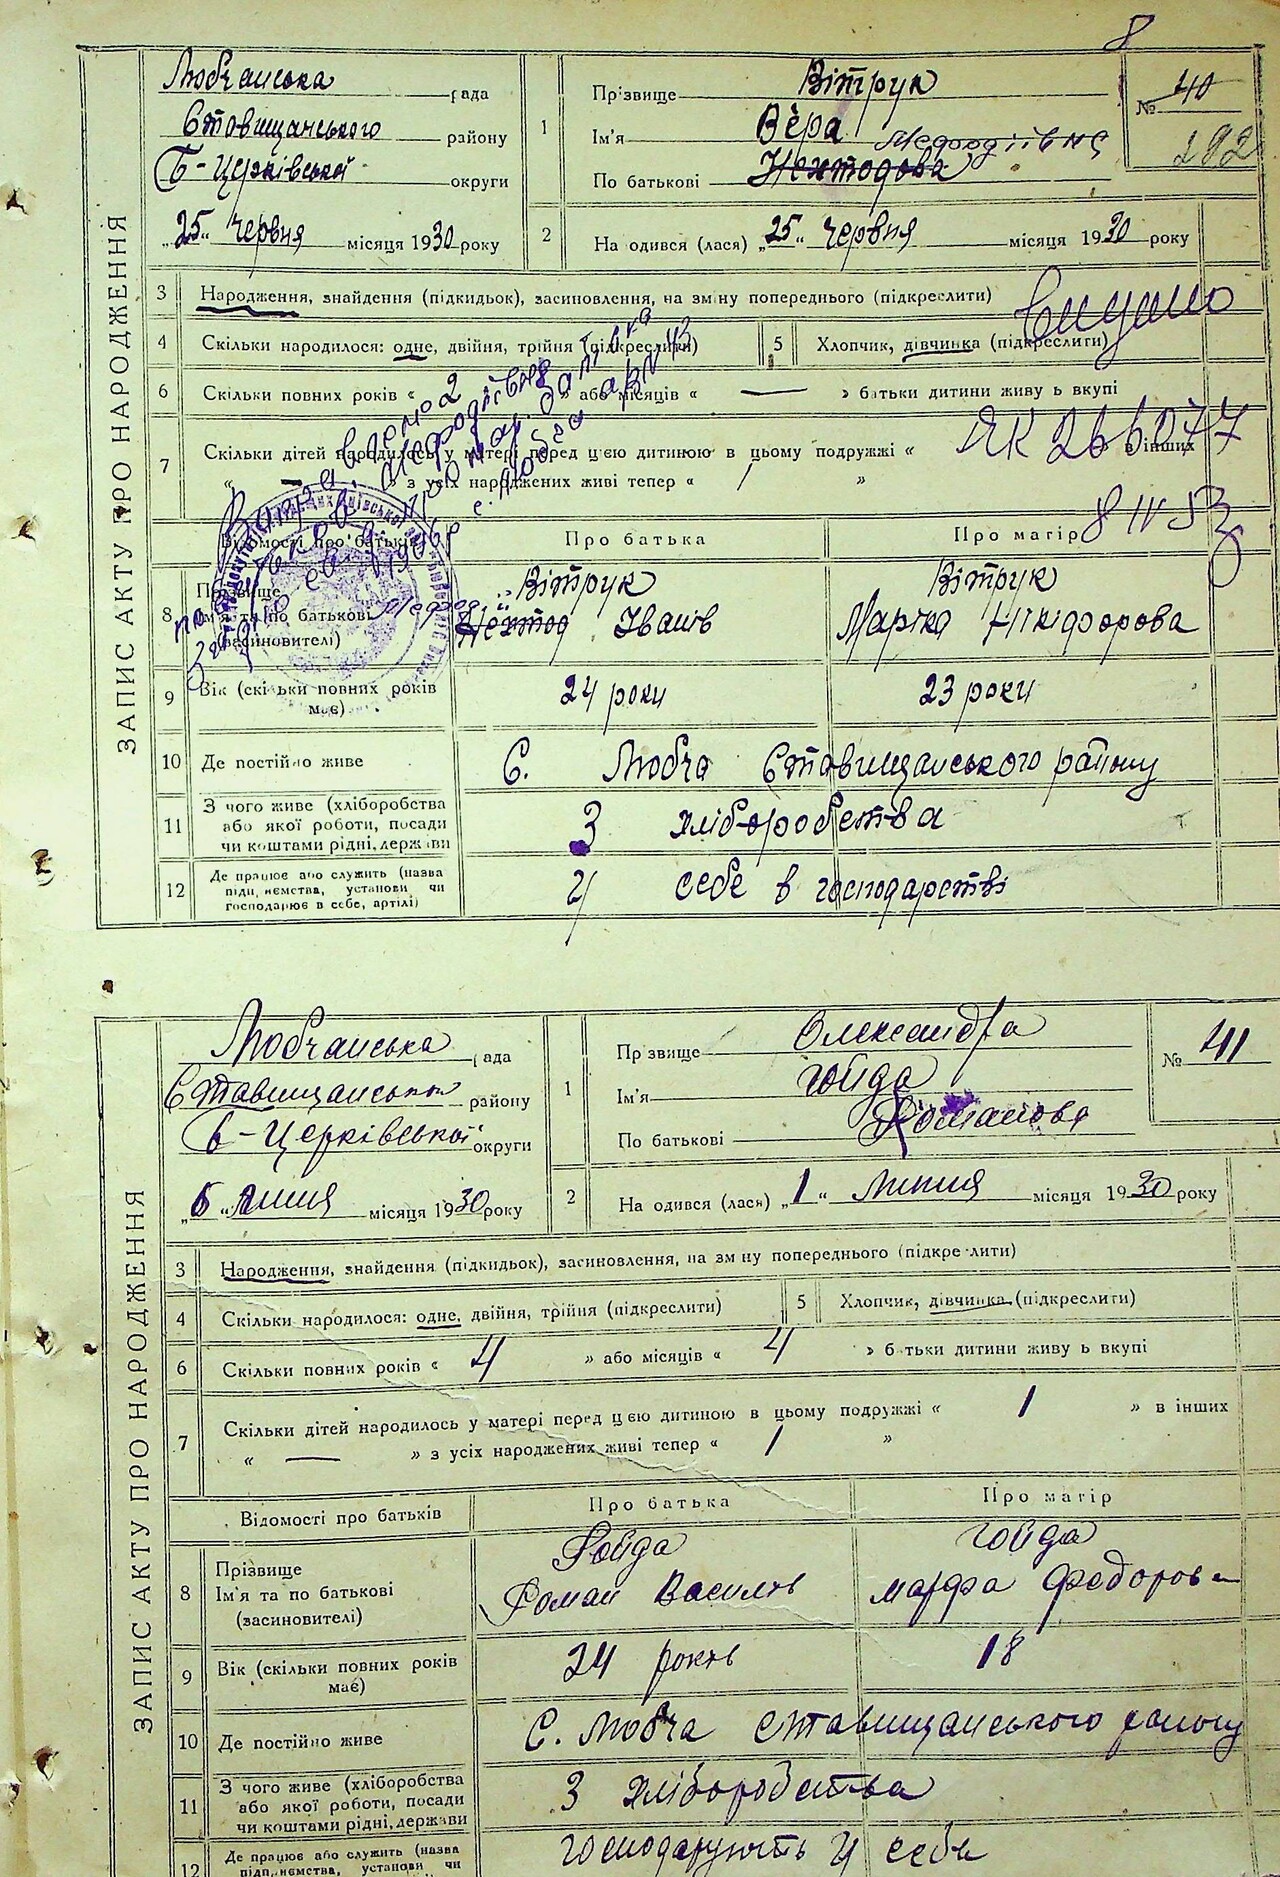 8
ЗАПИС АКТУ ПРО НАРОДЖЕННЯ
Любчанська рада
Ставищанського району
Б-Церківської округи
„25“ червня місяця 1930 року
1
Прізвище Вітрук
Ім'я Вєра
Мефодіївна
По батькові
№ 40
282
2 На одився (лася) „25“ червня місяця 1930 року
3 Народження, знайдення (підкидьок), засиновлення, на зміну попереднього (підкреслити)
Видано
4 Скільки народилося: одне, двійня, трійня (підкреслити) 5 Хлопчик, дівчинка (підкреслити)
6 Скільки повних років « » або місяців « — » батьки дитини живу ь вкупі
7 Скільки дітей народилось у матері перед цією дитиною в цьому подружжі « в інших
« — » з усіх народжених живі тепер « »
Відомості про батьків Про батька Про матір
8 Прізвище
Ім'я та по батькові
(засиновителі)
Вітрук
Іванів
Вітрук
Марійка Нікіфорова
9 Вік (скільки повних років має) 24 роки 23 роки
10 Де постійно живе С. Любча Ставищанського району
11 З чого живе (хліборобства
або якої роботи, посади
чи коштами рідні, держави
З хліборобства
12 Де працює або служить (назва
підприємства, установи чи
господарює в себе, артілі)
У себе в господарстві
ЗАПИС АКТУ ПРО НАРОДЖЕННЯ
Любчанська рада
Ставищанськ району
Б-Церківської округи
„6“ липня місяця 1930 року
1
Прізвище Олександра
Ім'я Гойда
По батькові Романова
№ 41
2 На одився (лася) „1“ липня місяця 1930 року
3 Народження, знайдення (підкидьок), засиновлення, на зміну попереднього (підкреслити)
4 Скільки народилося: одне, двійня, трійня (підкреслити) 5 Хлопчик, дівчинка (підкреслити)
6 Скільки повних років « 4 » або місяців « 4 » батьки дитини живу ь вкупі
7 Скільки дітей народилось у матері перед цією дитиною в цьому подружжі « 1 » в інших
« — » з усіх народжених живі тепер « 1 »
Відомості про батьків Про батька Про матір
8 Прізвище
Ім'я та по батькові
(засиновителі)
Гойда
Роман Василів
Гойда
Марфа Федорова
9 Вік (скільки повних років має) 24 років 18
10 Де постійно живе С. Любча Ставищанського району
11 З чого живе (хліборобства
або якої роботи, посади
чи коштами рідні, держави
З хліборобства
12 Де працює або служить (назва
підприємства, установи чи
господарують у себе